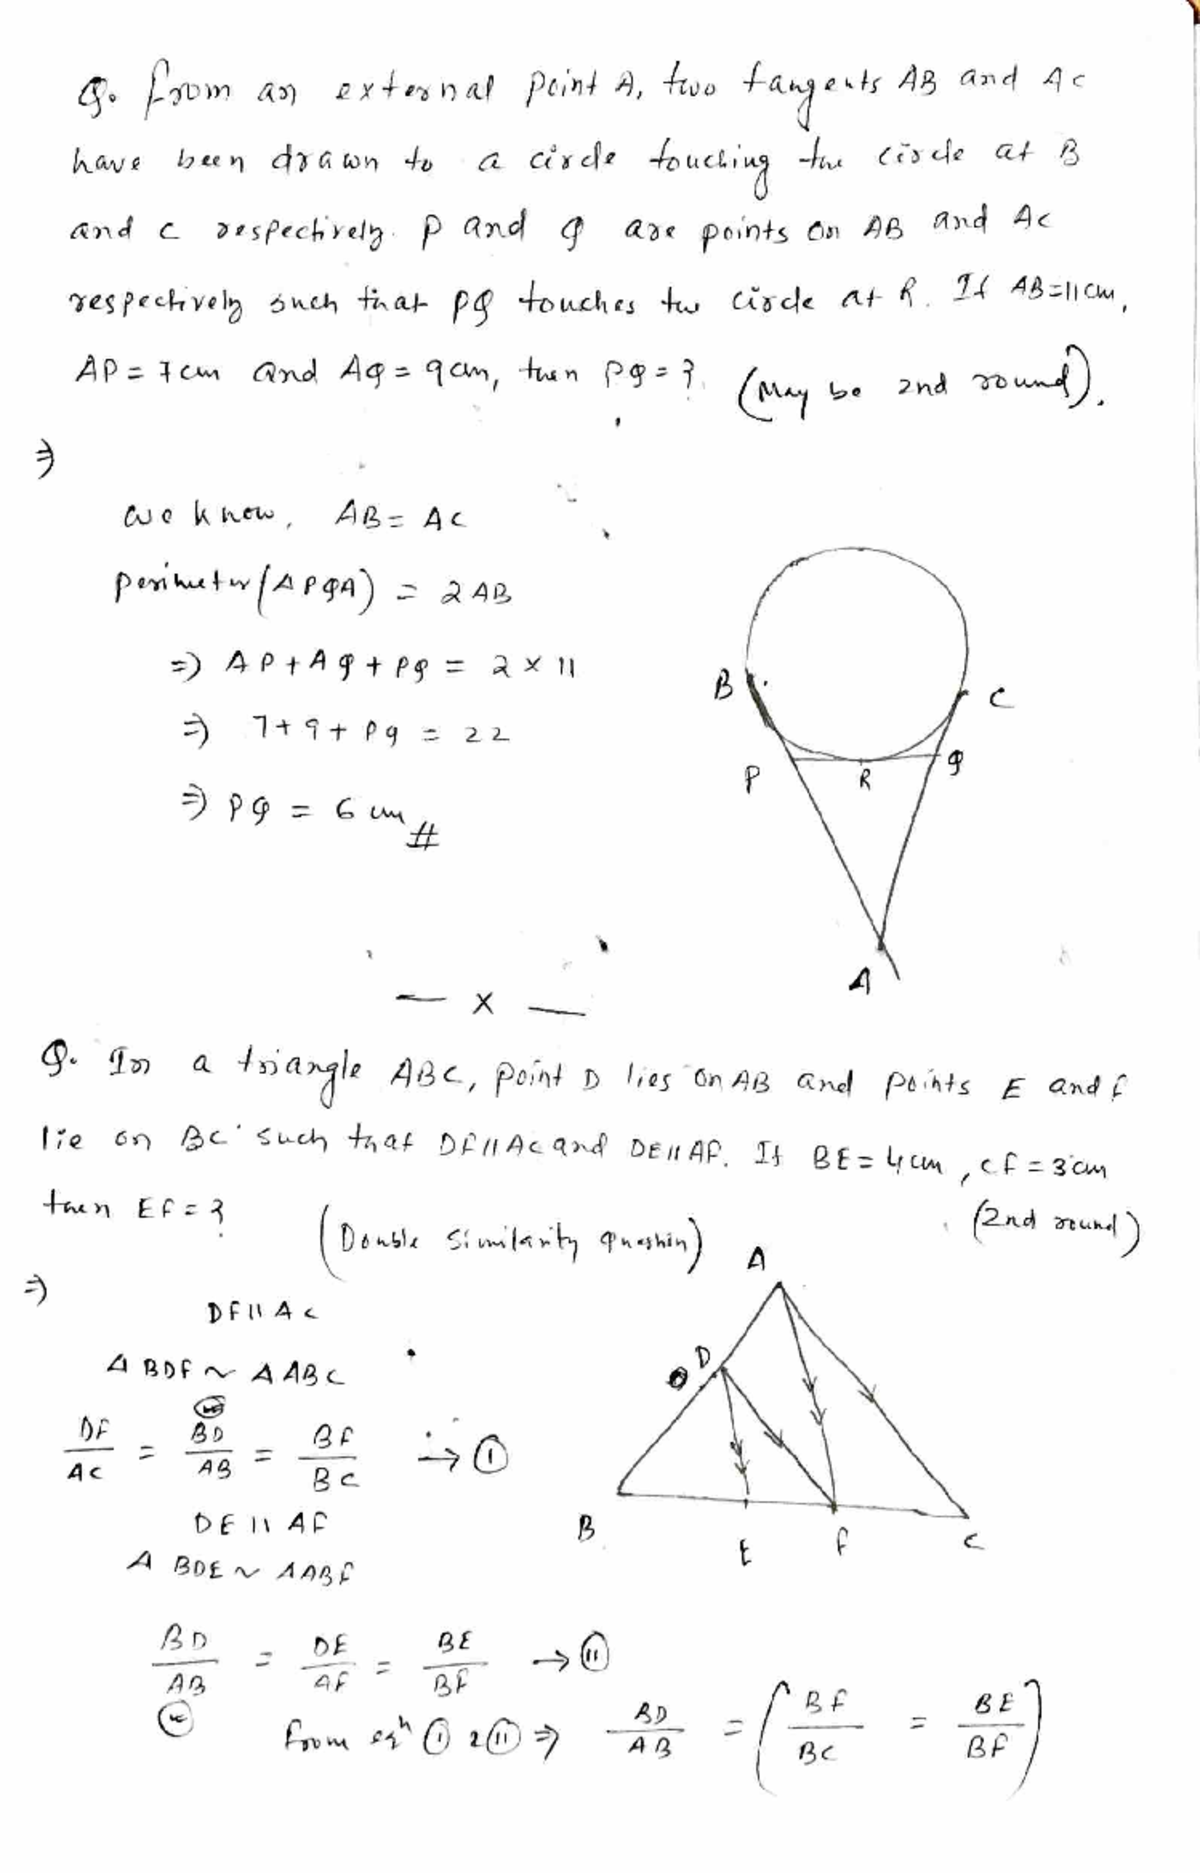 Q. From an external point A, two tangents AB and AC
have been drawn to a circle touching the circle at B
and C respectively. P and Q are points on AB and AC
respectively such that PQ touches the circle at R. If AB=11cm,
AP = 7cm and AQ = 9cm, then PQ = ? (May be 2nd round).
⇒
We know, AB = AC
perimeter (APQA) = 2AB
⇒ AP + AQ + PQ = 2 × 11
⇒ 7 + 9 + PQ = 22
⇒ PQ = 6 cm #
B
C
P
R
Q
A
— x —
Q. In a triangle ABC, point D lies on AB and points E and F
lie on BC such that DF || AC and DE || AF. If BE = 4cm, CF = 3cm
then EF = ? (Double Similarity Question) (2nd round)
⇒
DF || AC
Δ BDF ~ Δ ABC
DF/AC = BD/AB = BF/BC → (i)
DE || AF
Δ BDE ~ Δ ABF
BD/AB = DE/AF = BE/BF → (ii)
From eqn (i) & (ii) ⇒ BD/AB = (BF/BC = BE/BF)
A
D
B
E
F
C